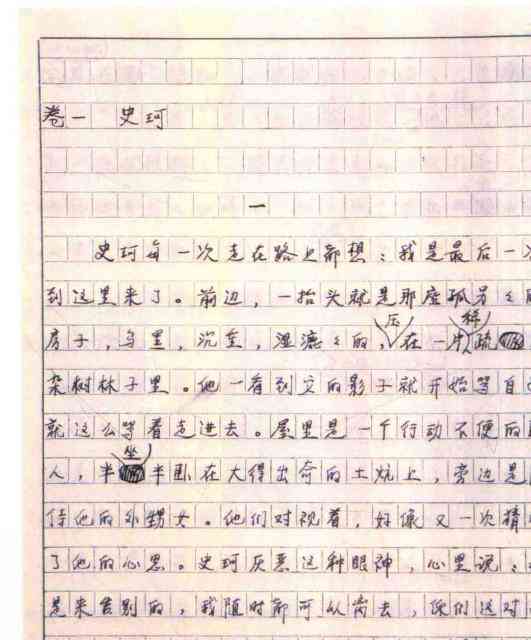 卷一 史珂
一
史珂每一次走在路上都想：我是最后一次
到这里来了。前边，一抬头就是那座孤另々的
房子，乌黑，沉重，湿漉々的，压在一片稀疏
杂树林子里。他一看到它的影子就开始笑自己
就这么笑着走进去。屋里是一个行动不便的
人，半坐半卧在大得出奇的土炕上，旁边是
侍他的外甥女。他们对视着，好像又一次猜
了他的心思。史珂厌恶这种眼神，心里说：
是来告别的，我随时都可以离去，你们这对